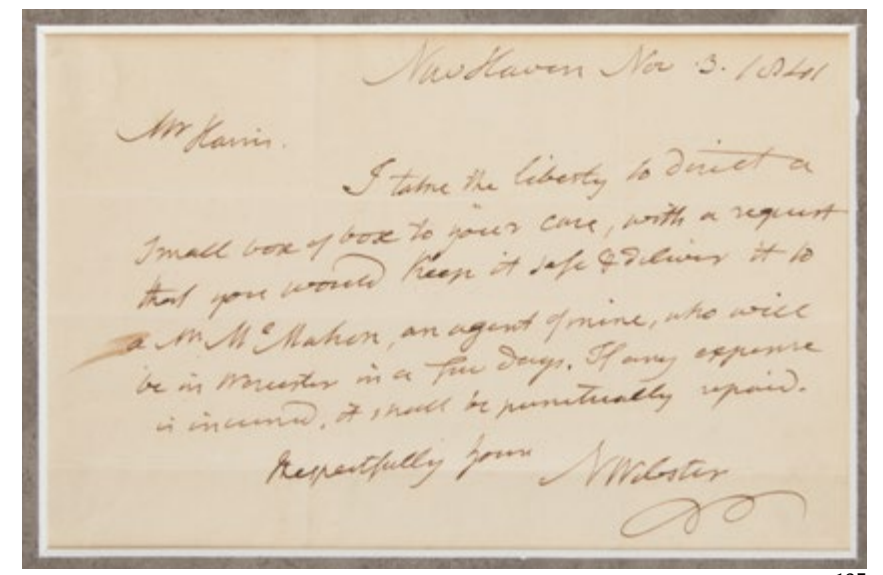 New Haven Nov 3. 1841
Mr Harris.
I take the liberty to direct a
small box of box to your care, with a request
that you would keep it safe & deliver it to
a Mr. McMahon, an agent of mine, who will
be in Worcester in a few days. If any expense
is incurred, it shall be punctually repaid.
Respectfully yours N Webster